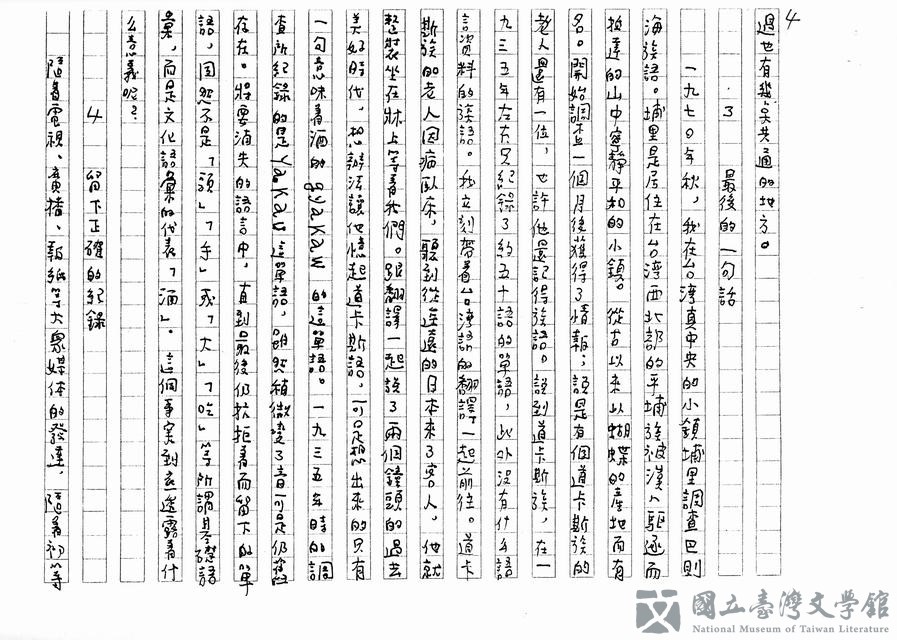 4
過也有幾点共通的地方。
3 最後的一句話
一九七〇年秋，我在台湾真中央的小鎮埔里調查巴則
海族語。埔里是居住在台湾西北部的平埔族被漢人驅逐而
搬達的山中寧靜平和的小鎮。從古以來以蝴蝶的產地而有
名。開始調查一個月後獲得了情報；說是有個道卡斯族的
老人還有一位，也許他還記得族語。說到道卡斯族，在一
九三五年左右只紀錄了約五十語的單語，此外沒有什么語
言資料的族語。我立刻帶着台湾語的翻譯一起前往。道卡
斯族的老人因病臥床，聽到從遙遠的日本來了客人，他就
整裝坐在牀上等着我們。跟翻譯一起談了兩個鐘頭的過去
美好時代，想辦法讓他憶起道卡斯語，可是想出來的只有
一句意味着酒的 gyakaw 的這單語。一九三五年時的調
查所紀錄的是 yakau 這單語，雖然稍微變了音可是仍舊
存在。將要消失的語言中，直到最後仍抗拒着而留下的單
語，固然不是「頭」「手」或「大」「吃」等所謂基礎語
彙，而是文化語彙的代表「酒」。這個事实到底透露着什
么意義呢？
4 留下正確的紀錄
隨着電視、廣播、報紙等大衆媒体的發達，隨着初等
國立臺灣文學館
National Museum of Taiwan Literature